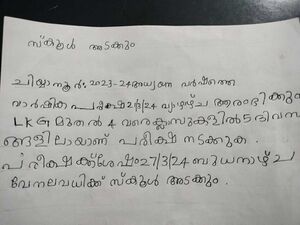 സ്കൂൾ അടക്കും
ചിയ്യാനൂർ: 2023-24 അധ്യയന വർഷത്തെ
വാർഷിക പരീക്ഷ 21/3/24 വ്യാഴാഴ്ച ആരംഭിക്കുന്ന
LKG മുതൽ 4 വരെ ക്ലാസുകളിൽ 5 ദിവസ
ങ്ങളിലായാണ് പരീക്ഷ നടക്കുക.
പരീക്ഷക്ക് ശേഷം 27/3/24 ബുധനാഴ്ച
വേനലവധിക്ക് സ്കൂൾ അടക്കും.